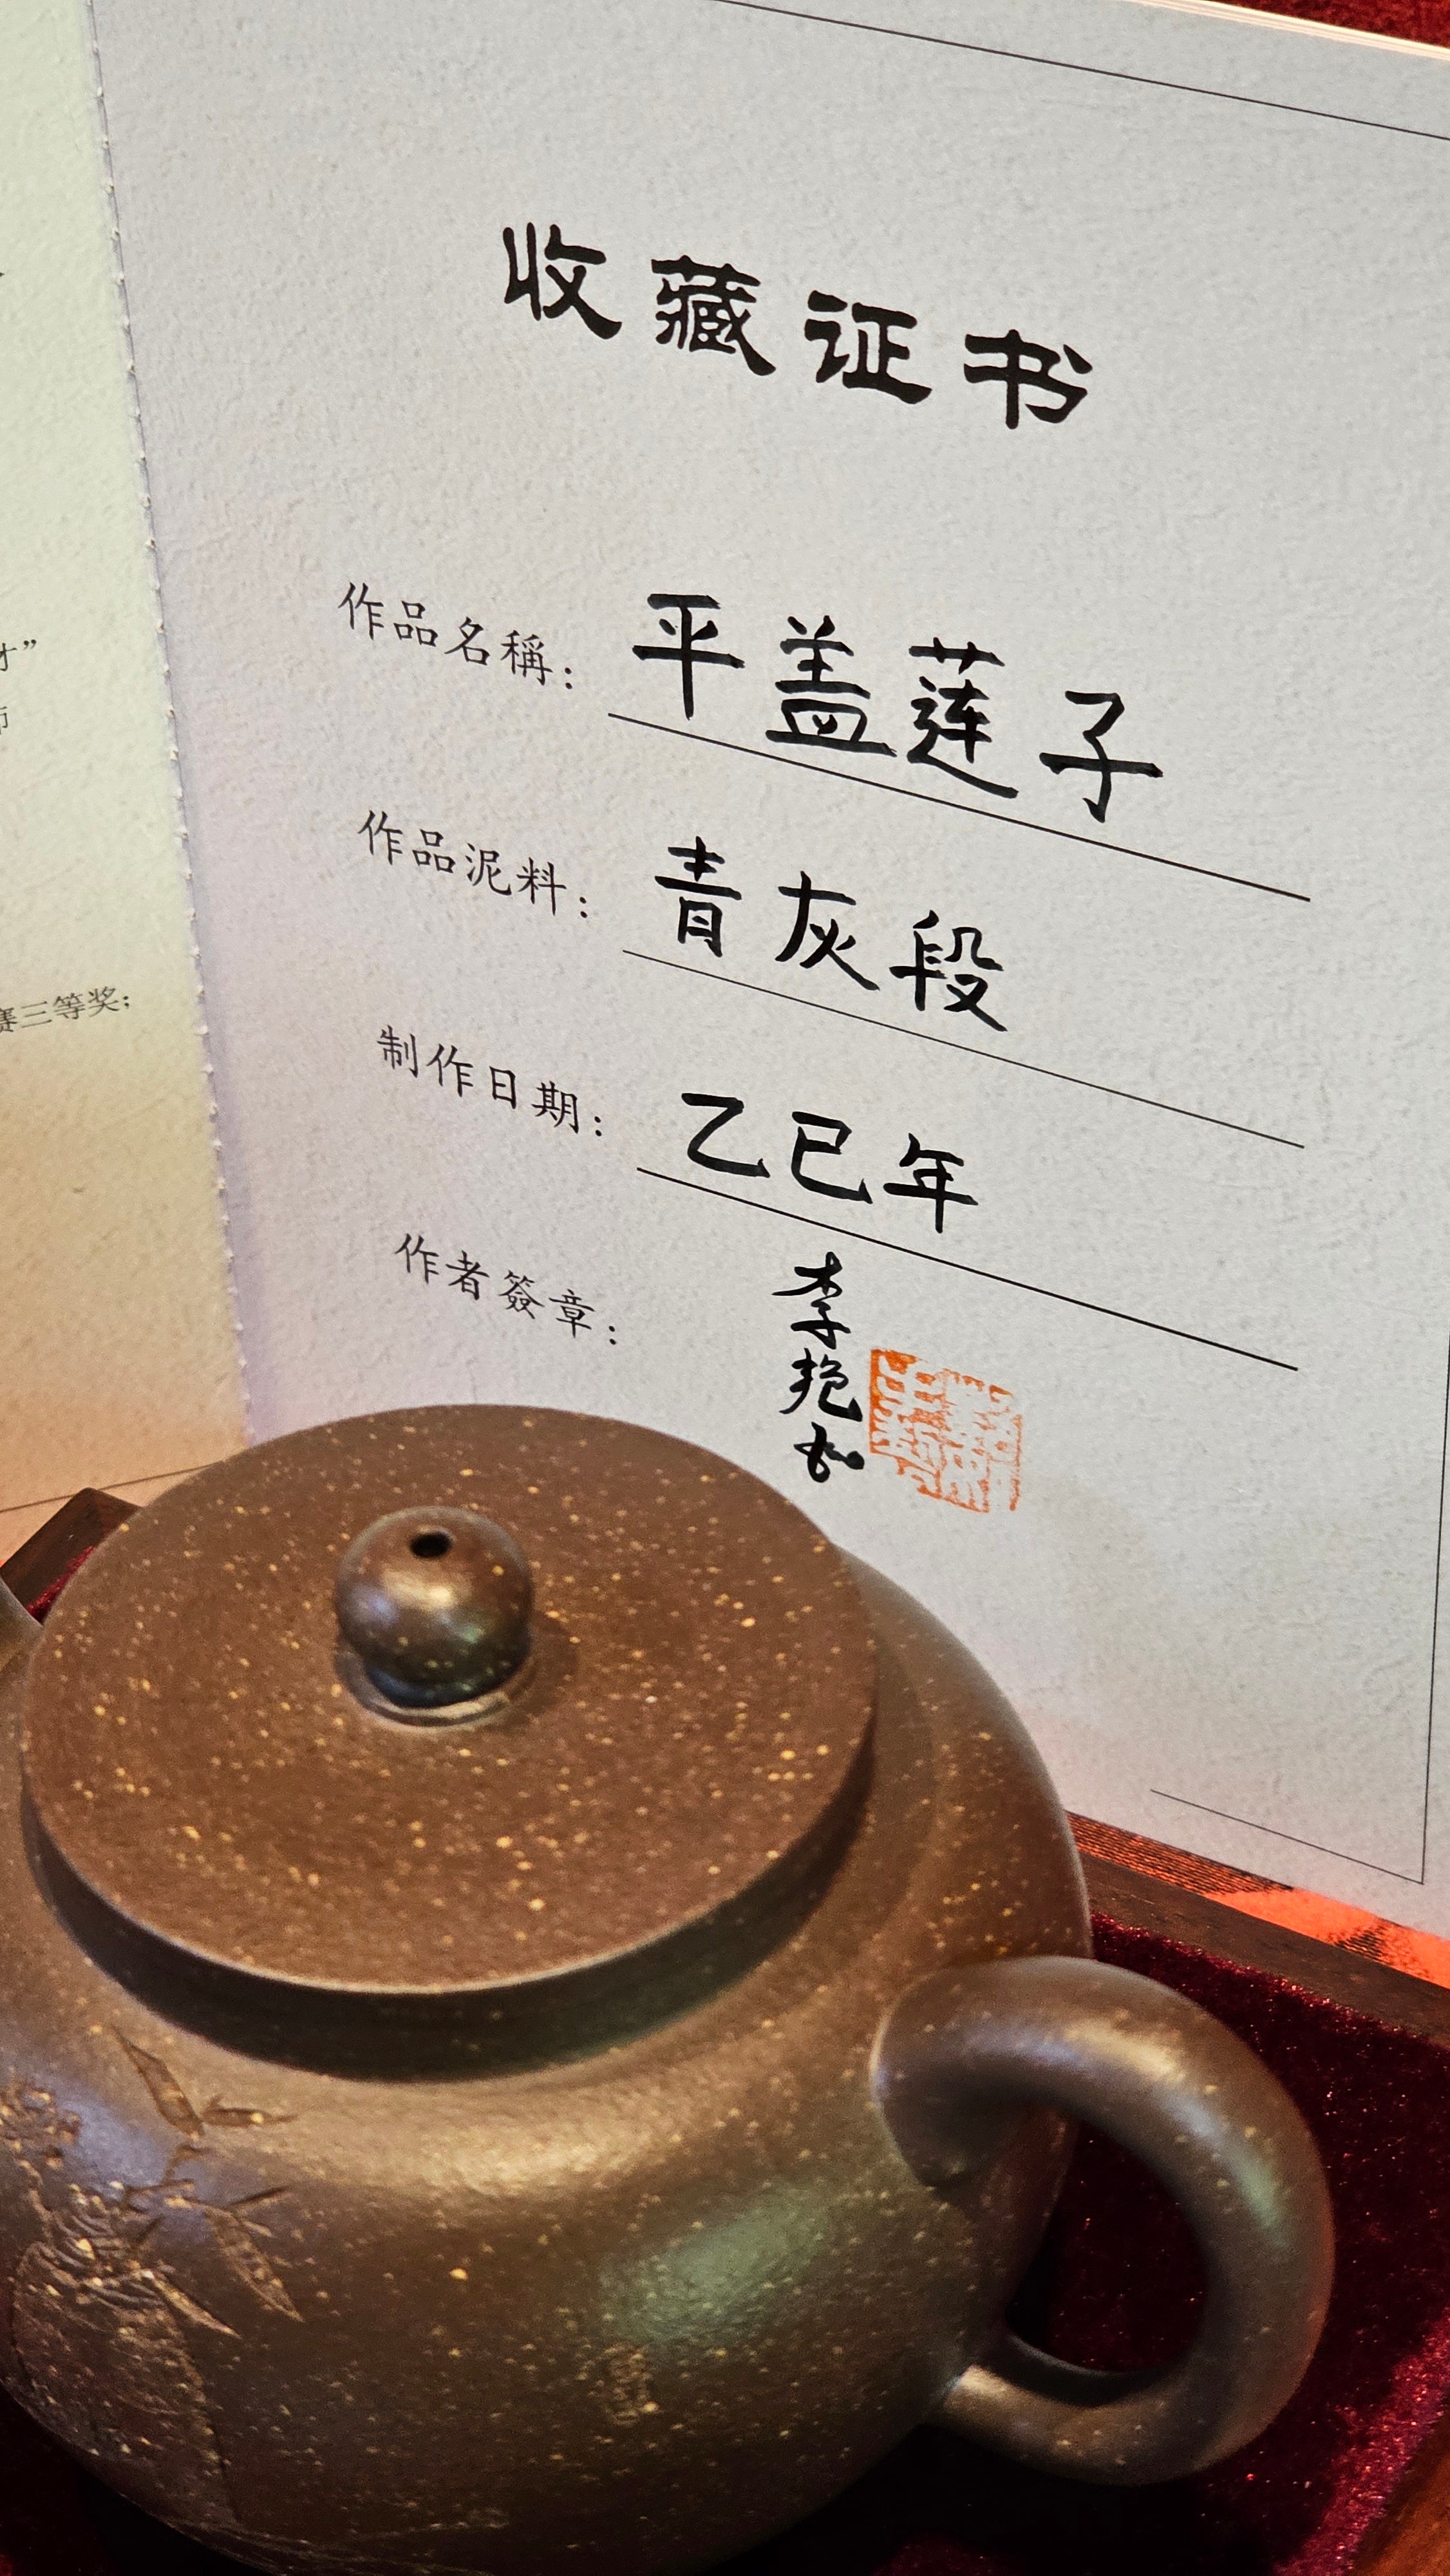 收藏证书
作品名稱：平盖莲子
作品泥料：青灰段
制作日期：乙巳年
作者簽章：李艳
赛三等奖；